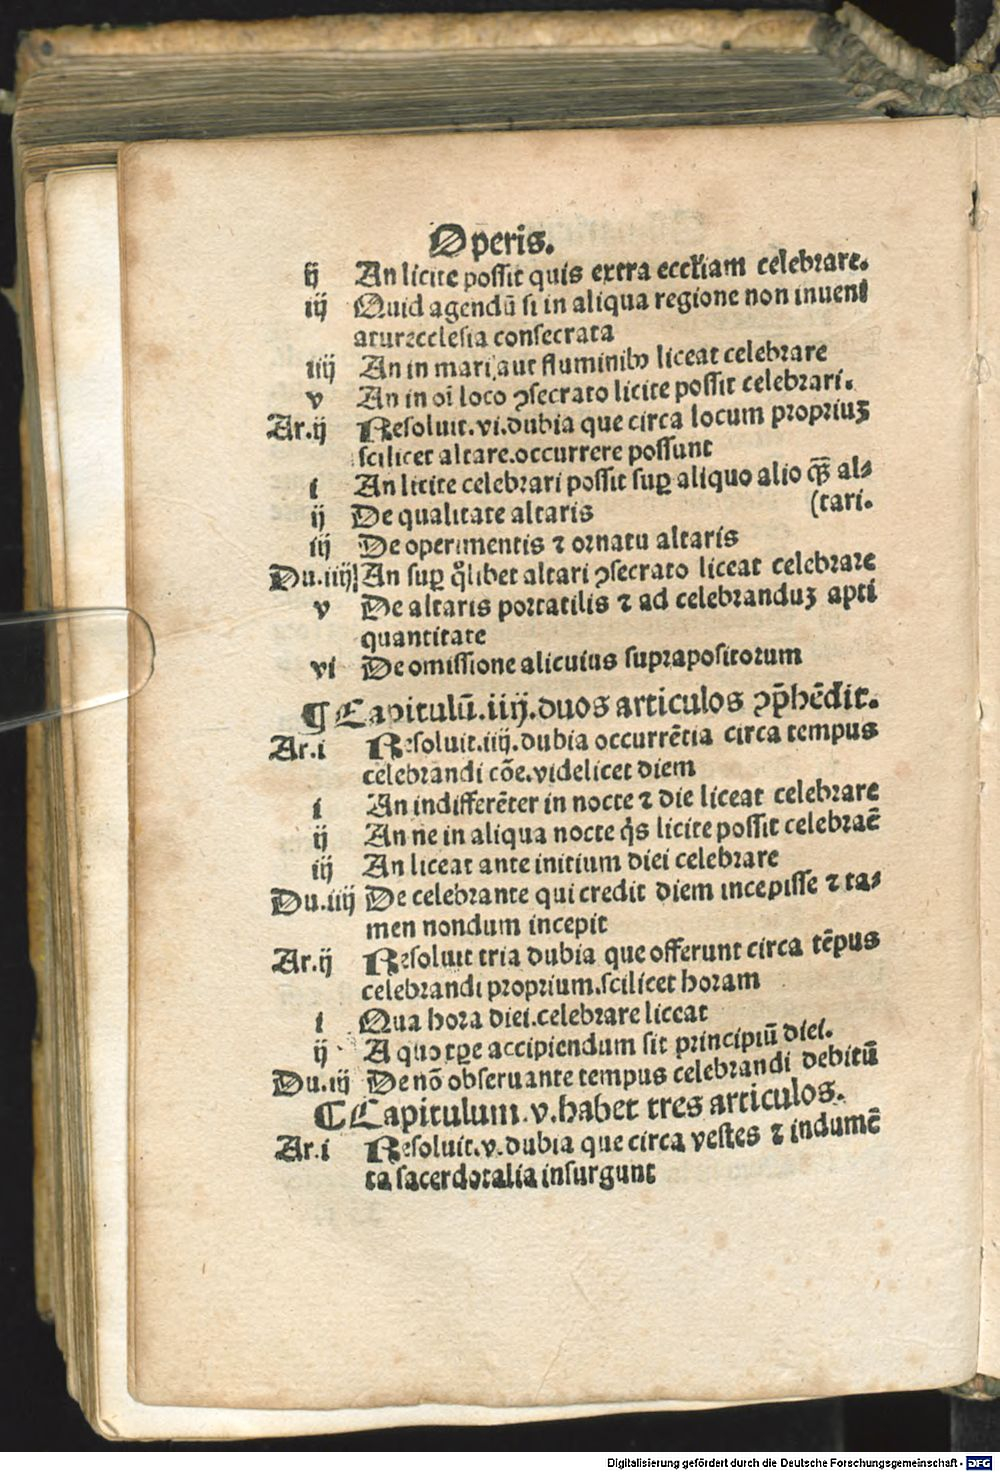 Operis.
ij An licite possit quis extra eccłiam celebrare.
iij Quid agendū si in aliqua regione non inueni
atur ecclesia consecrata
iiij An in mari aut fluminibꝫ liceat celebrare
v An in oī loco ꝯsecrato licite possit celebrari.
Ar.ij Resoluit.vi.dubia que circa locum propriuꝫ
scilicet altare.occurrere possunt
i An licite celebrari possit suꝑ aliquo alio qͣꝫ al⸗
ij De qualitate altaris (tari.
iij De operimentis ⁊ ornatu altaris
Du.iiij An suꝑ qͥlibet altari ꝯsecrato liceat celebrare
v De altaris portatilis ⁊ ad celebranduꝫ apti
quantitate
vi De omissione alicuius suprapositorum
¶ Capitulū.iiij.duos articulos ꝯp̄hēdit.
Ar.i Resoluit.iiij.dubia occurrētia circa tempus
celebrandi cōe.videlicet diem
i An indifferēter in nocte ⁊ die liceat celebrare
ij An ne in aliqua nocte qͥs licite possit celebraē
iij An liceat ante initium diei celebrare
Du.iiij De celebrante qui credit diem incepisse ⁊ ta⸗
men nondum incepit
Ar.ij Resoluit tria dubia que offerunt circa tēpus
celebrandi proprium.scilicet horam
i Qua hora diei.celebrare liceat
ij A quo tꝑe accipiendum sit principiū diei.
Du.iij De nō obseruante tempus celebrandi debitū
¶ Capitulum.v.habet tres articulos.
Ar.i Resoluit.v.dubia que circa vestes ⁊ indumē
ta sacerdotalia insurgunt
Digitalisierung gefördert durch die Deutsche Forschungsgemeinschaft - DFG